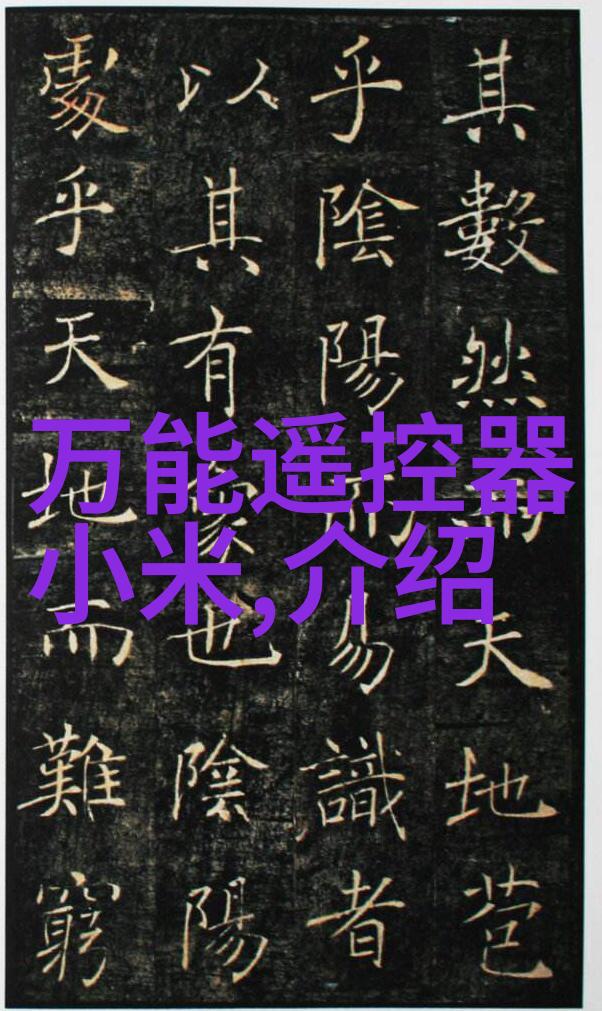 其數然而天地苞
乎陰陽而易識者
以其有象也陰陽
處乎天地而難窮
万能遥控器
小米,介绍